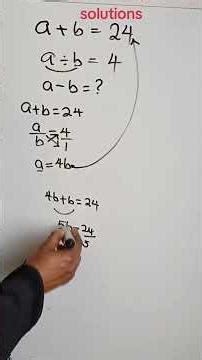 solutions
a + b = 24
a ÷ b = 4
a - b = ?
a+b = 24
a/b = 4/1
a = 4b
4b+b = 24
5b = 24/5